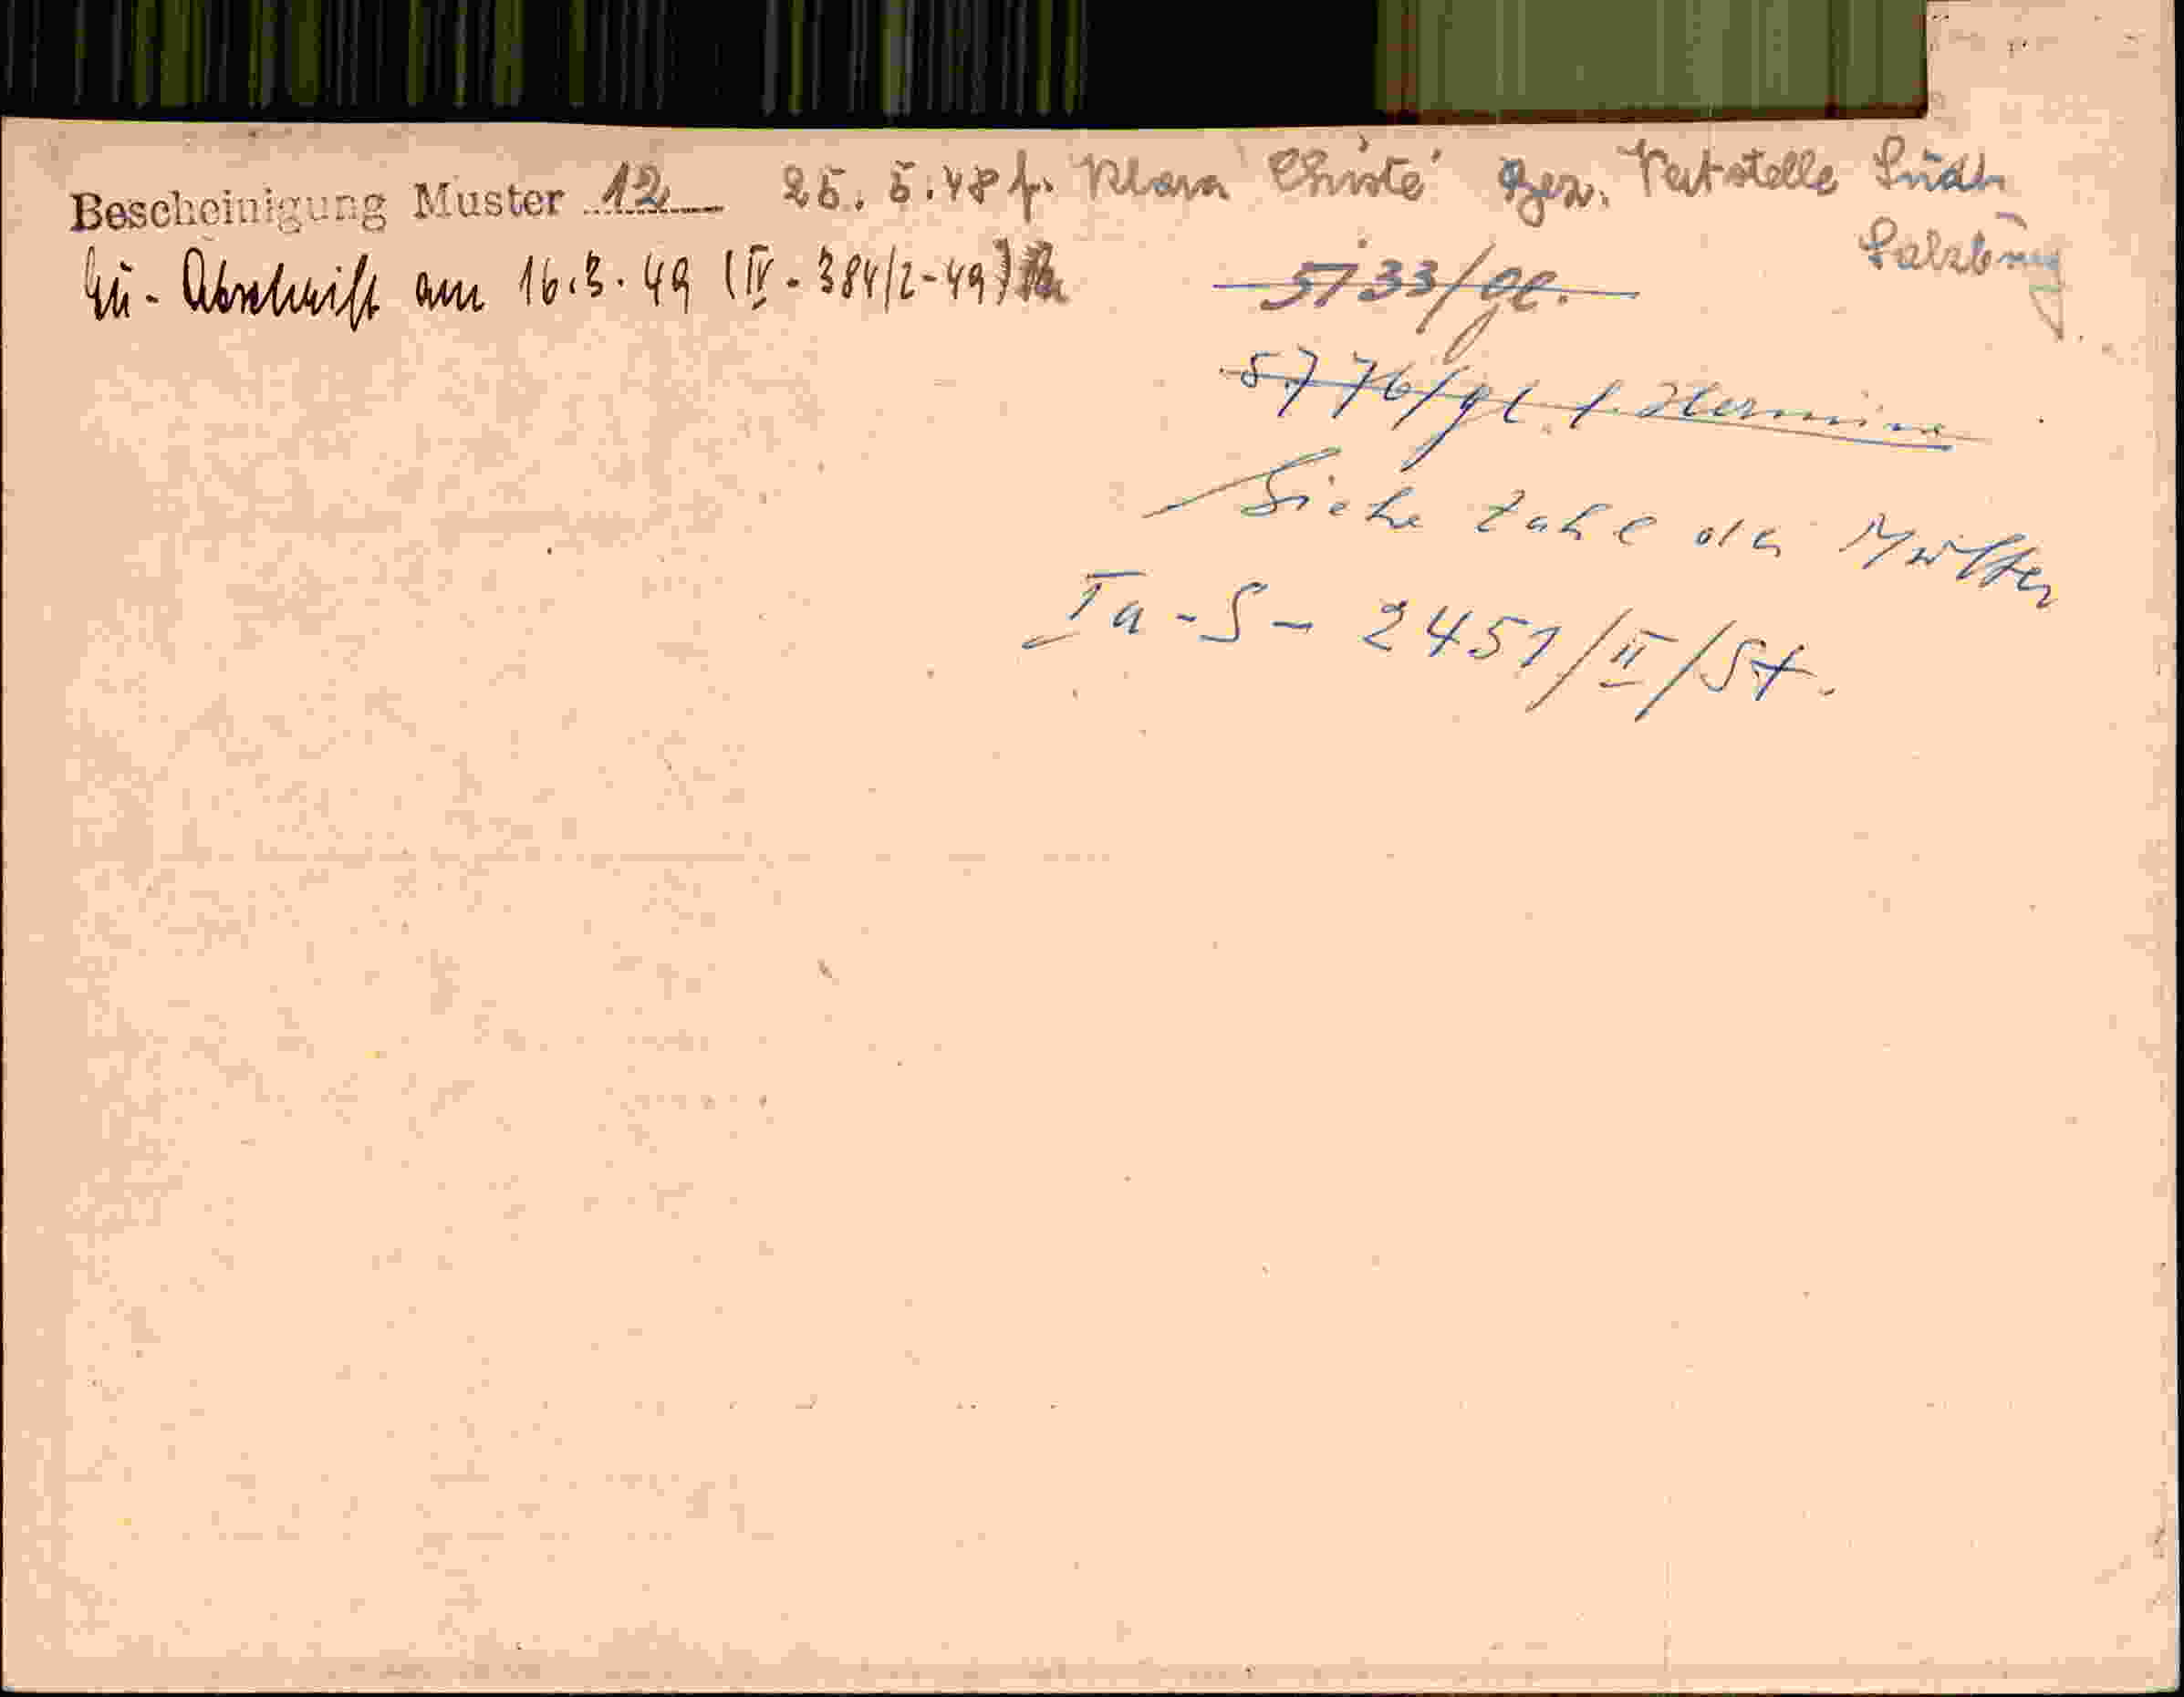 Bescheinigung Muster 12 25. 5. 48 f. Klara Christé Bez. Vert stelle Südt.
Salzburg
Gü - Abschrift am 16.3.49 (IV - 384/2-49)
5133/gl.
5776/gl. f. Hermine
Siehe Zahl der Mutter
Ia - S - 2451/II/St.